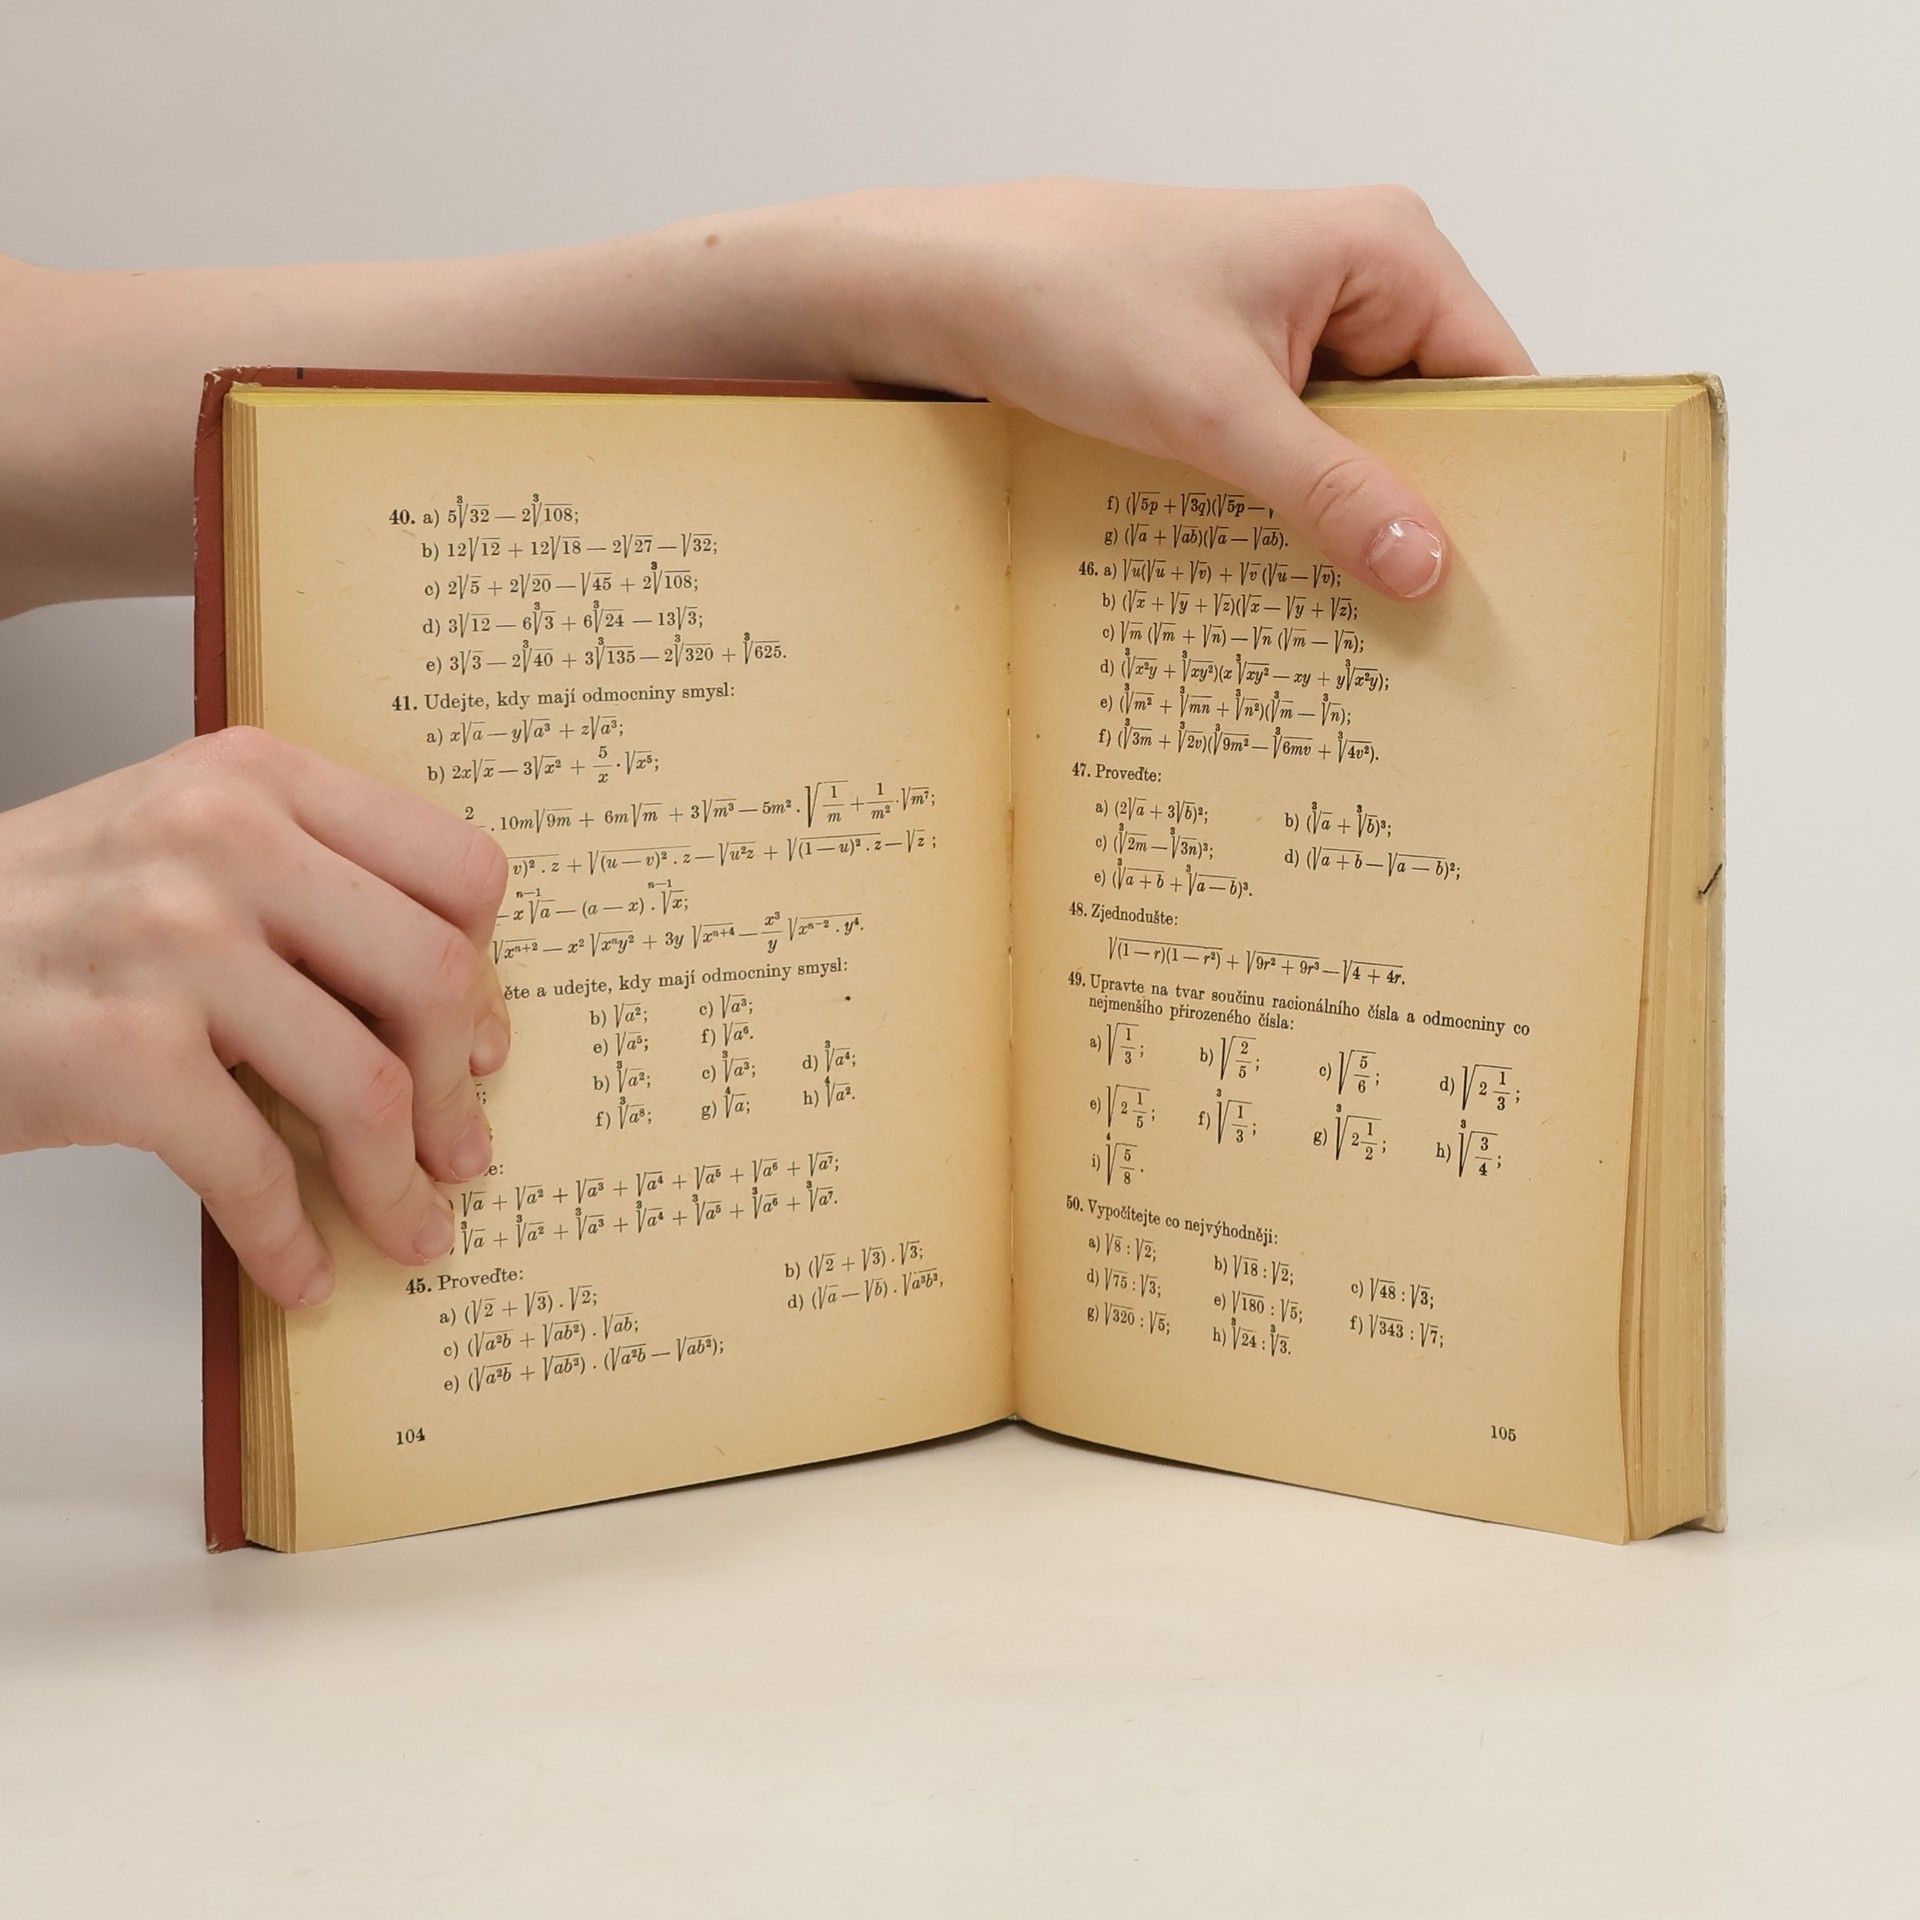 40. a) 5∛32 — 2∛108;
b) 12√12 + 12√18 — 2√27 — √32;
c) 2√5 + 2√20 — √45 + 2∛108;
d) 3√12 — 6∛3 + 6∛24 — 13√3;
e) 3√3 — 2∛40 + 3∛135 — 2∛320 + ∛625.
41. Udejte, kdy mají odmocniny smysl:
a) x√a — y√a³ + z√a³;
b) 2x√x — 3√x² + 5/x · √x⁵;
2 . 10m√9m + 6m√m + 3√m³ — 5m² . √(1/m) + 1/m² · √m⁷;
v)² . z + √((u — v)² . z) — √(u²z) + √((1 — u)² . z) — √z ;
— x ⁿ⁻¹√a — (a — x) . ⁿ⁻¹√x;
√(xⁿ⁺²) — x² √(xⁿy²) + 3y √(xⁿ⁺⁴) — x³/y √(xⁿ⁻² . y⁴).
a udejte, kdy mají odmocniny smysl:
b) √a²; c) √a³;
e) √a⁵; f) √a⁶.
b) ∛a²; c) ∛a³; d) ∛a⁴;
f) ∛a⁸; g) ∜a; h) ∜a².
√a + √a² + √a³ + √a⁴ + √a⁵ + √a⁶ + √a⁷;
∛a + ∛a² + ∛a³ + ∛a⁴ + ∛a⁵ + ∛a⁶ + ∛a⁷.
45. Proveďte:
a) (√2 + √3) . √2; b) (√2 + √3) . √3;
c) (√(a²b) + √(ab²)) . √(ab); d) (√a — √b) . √(a³b³),
e) (√(a²b) + √(ab²)) . (√(a²b) — √(ab²));
104
f) (√5p + √3q)(√5p —
g) (√a + √ab)(√a — √ab).
46. a) √u(√u + √v) + √v (√u — √v);
b) (√x + √y + √z)(√x — √y + √z);
c) √m (√m + √n) — √n (√m — √n);
d) (∛(x²y) + ∛(xy²))(x ∛(xy²) — xy + y∛(x²y));
e) (∛m² + ∛mn + ∛n²)(∛m — ∛n);
f) (∛3m + ∛2v)(∛9m² — ∛6mv + ∛4v²).
47. Proveďte:
a) (2√a + 3√b)²; b) (∛a + ∛b)³;
c) (∛2m — ∛3n)³; d) (√(a + b) — √(a — b))²;
e) (∛(a + b) + ∛(a — b))³.
48. Zjednodušte:
√((1 — r)(1 — r²)) + √(9r² + 9r³) — √(4 + 4r).
49. Upravte na tvar součinu racionálního čísla a odmocniny co
nejmenšího přirozeného čísla:
a) √(1/3); b) √(2/5); c) √(5/6); d) √(2 1/3);
e) √(2 1/5); f) ∛(1/3); g) ∛(2 1/2); h) ∛(3/4);
i) ∜(5/8).
50. Vypočítejte co nejvýhodněji:
a) √8 : √2; b) √18 : √2; c) √48 : √3;
d) √75 : √3; e) √180 : √5; f) √343 : √7;
g) √320 : √5; h) ∛24 : ∛3.
105